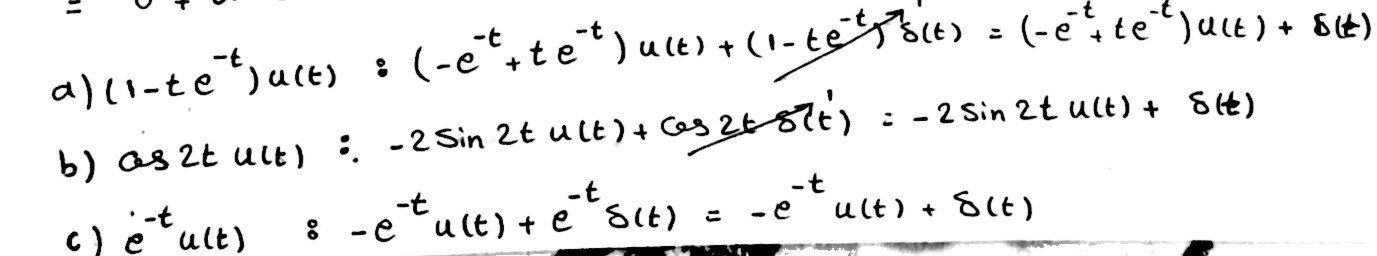 a) (1-te^-t)u(t) : (-e^-t + te^-t)u(t) + (1-te^-t)δ(t) = (-e^-t + te^-t)u(t) + δ(t)
b) cos 2t u(t) : -2 Sin 2t u(t) + Cos 2t δ(t) = -2 Sin 2t u(t) + δ(t)
c) e^-t u(t) : -e^-t u(t) + e^-t δ(t) = -e^-t u(t) + δ(t)